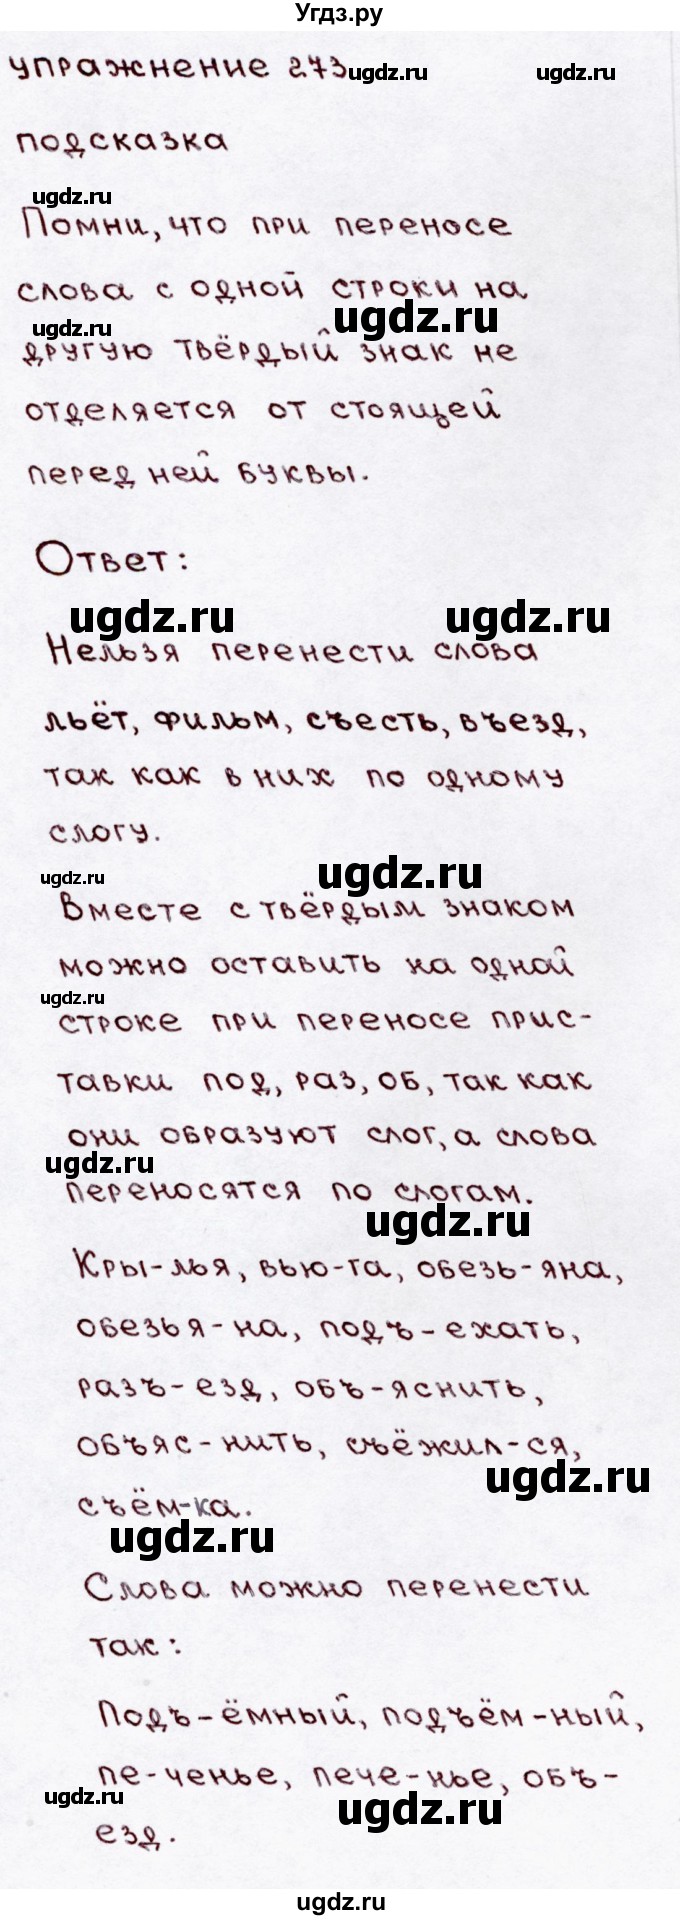 Угдз.ру
упражнение 273
ugdz.ru ugdz.ru
подсказка
ugdz.ru
Помни, что при переносе
слова с одной строки на
ugdz.ru ugdz.ru
другую твёрдый знак не
отделяется от стоящей
перед ней буквы.
Ответ:
ugdz.ru ugdz.ru
Нельзя перенести слова
льёт, фильм, съесть, въезд,
так как в них по одному
слогу.
ugdz.ru ugdz.ru
Вместе с твёрдым знаком
можно оставить на одной
ugdz.ru
строке при переносе прис-
тавки под, раз, об, так как
они образуют слог, а слова
ugdz.ru
переносятся по слогам.
ugdz.ru
Кры-лья, вью-га, обезь-яна,
обезья-на, подъ-ехать,
разъ-езд, объ-яснить,
объяс-нить, съёжил-ся,
ugdz.ru
съём-ка.
ugdz.ru
Слова можно перенести
так:
Подъ-ёмный, подъём-ный,
пе-ченье, пече-нье, объ-
ugdz.ru ugdz.ru
езд.
ugdz.ru